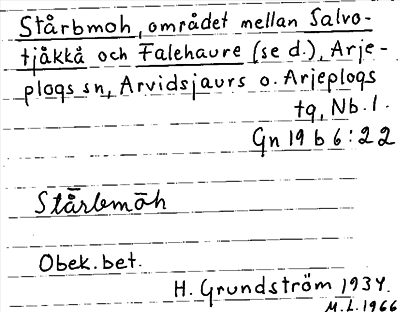 Stårbmoh, området mellan Salvo-
tjåkkå och Falehaure (se d.), Arje-
plogs sn, Arvidsjaurs o. Arjeplogs
tg, Nb. l.
Gn 19 b 6:22
Stårbmōh
Obek. bet.
H. Grundström 1934.
M.L. 1966